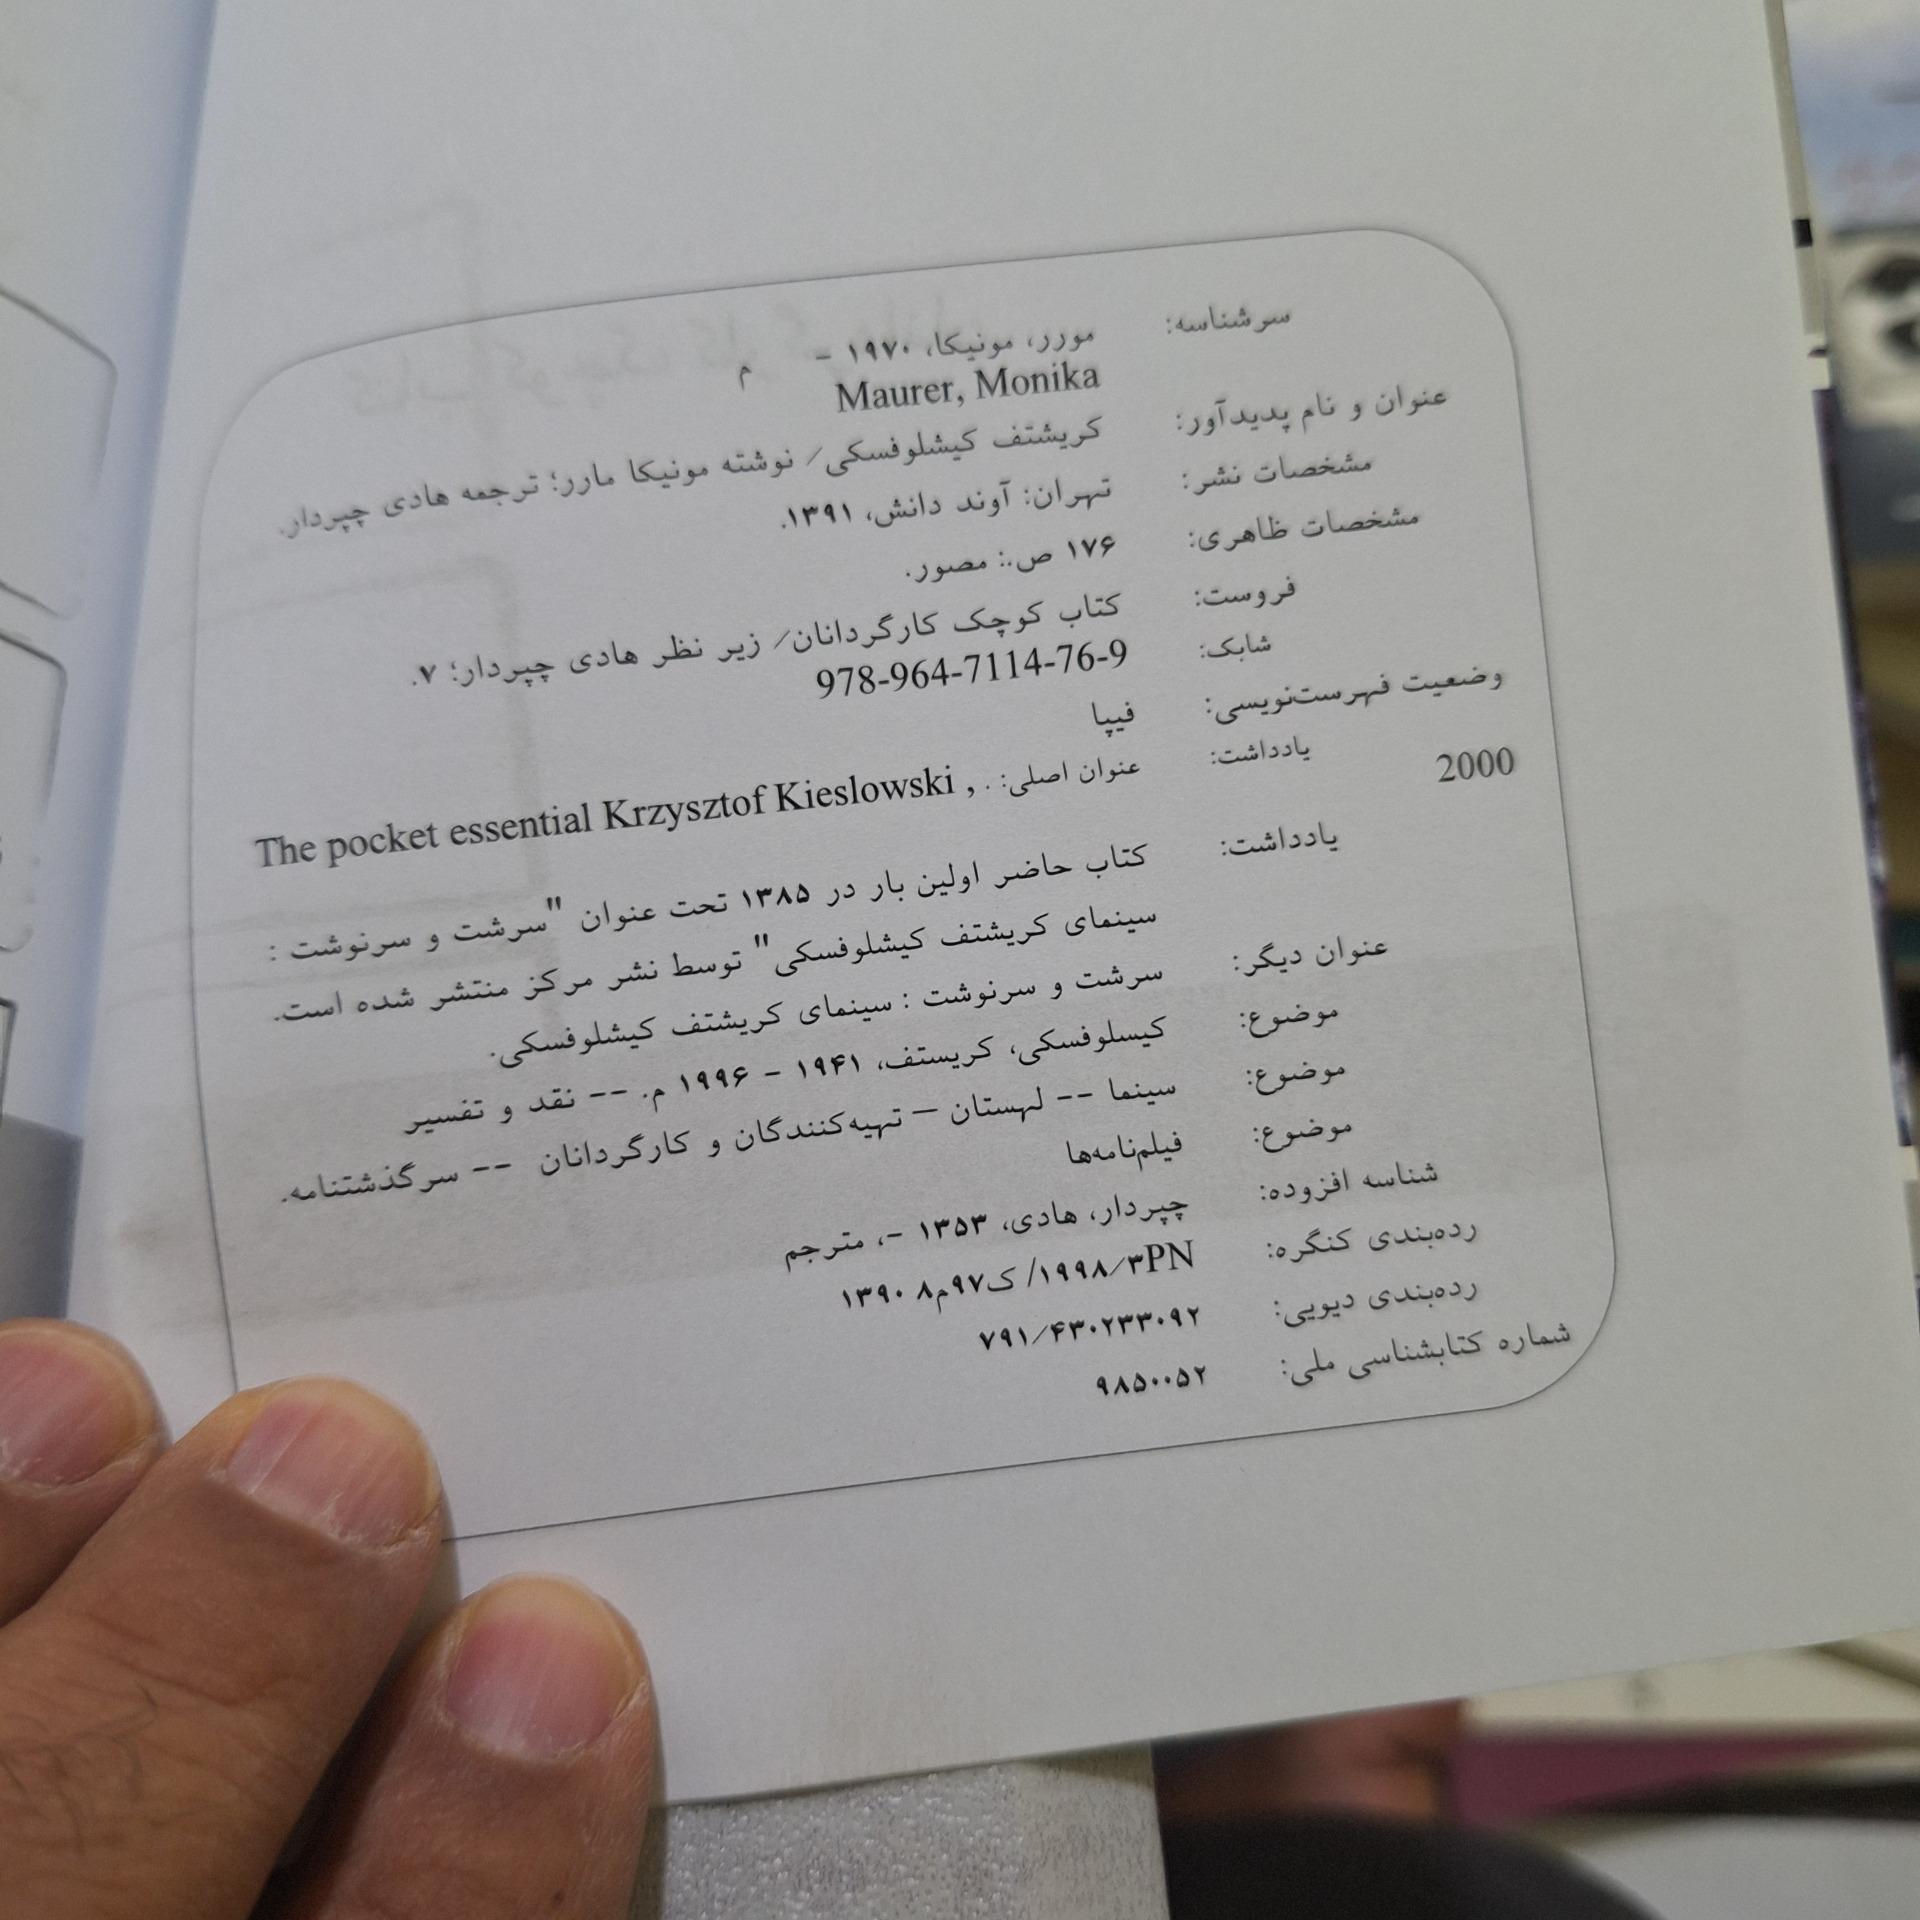 سرشناسه: مورر، مونیکا، ۱۹۷۰ - م
Maurer, Monika
عنوان و نام پدیدآور: کریشتف کیشلوفسکی/ نوشته مونیکا مارر؛ ترجمه هادی چپردار.
مشخصات نشر: تهران: آوند دانش، ۱۳۹۱.
مشخصات ظاهری: ۱۷۶ ص.: مصور.
فروست: کتاب کوچک کارگردانان/ زیر نظر هادی چپردار؛ ۷.
شابک: 978-964-7114-76-9
وضعیت فهرست‌نویسی: فیپا
یادداشت: عنوان اصلی: . The pocket essential Krzysztof Kieslowski ,
2000
یادداشت: کتاب حاضر اولین بار در ۱۳۸۵ تحت عنوان "سرشت و سرنوشت :
سینمای کریشتف کیشلوفسکی" توسط نشر مرکز منتشر شده است.
عنوان دیگر: سرشت و سرنوشت : سینمای کریشتف کیشلوفسکی.
موضوع: کیسلوفسکی، کریستف، ۱۹۴۱ - ۱۹۹۶ م. -- نقد و تفسیر
موضوع: سینما -- لهستان – تهیه‌کنندگان و کارگردانان -- سرگذشتنامه.
موضوع: فیلم‌نامه‌ها
شناسه افزوده: چپردار، هادی، ۱۳۵۳ -، مترجم
رده‌بندی کنگره: PN۱۹۹۸/۳/ ک۹۷م۸ ۱۳۹۰
رده‌بندی دیویی: ۷۹۱/۴۳۰۲۳۳۰۹۲
شماره کتابشناسی ملی: ۹۸۵۰۰۵۲